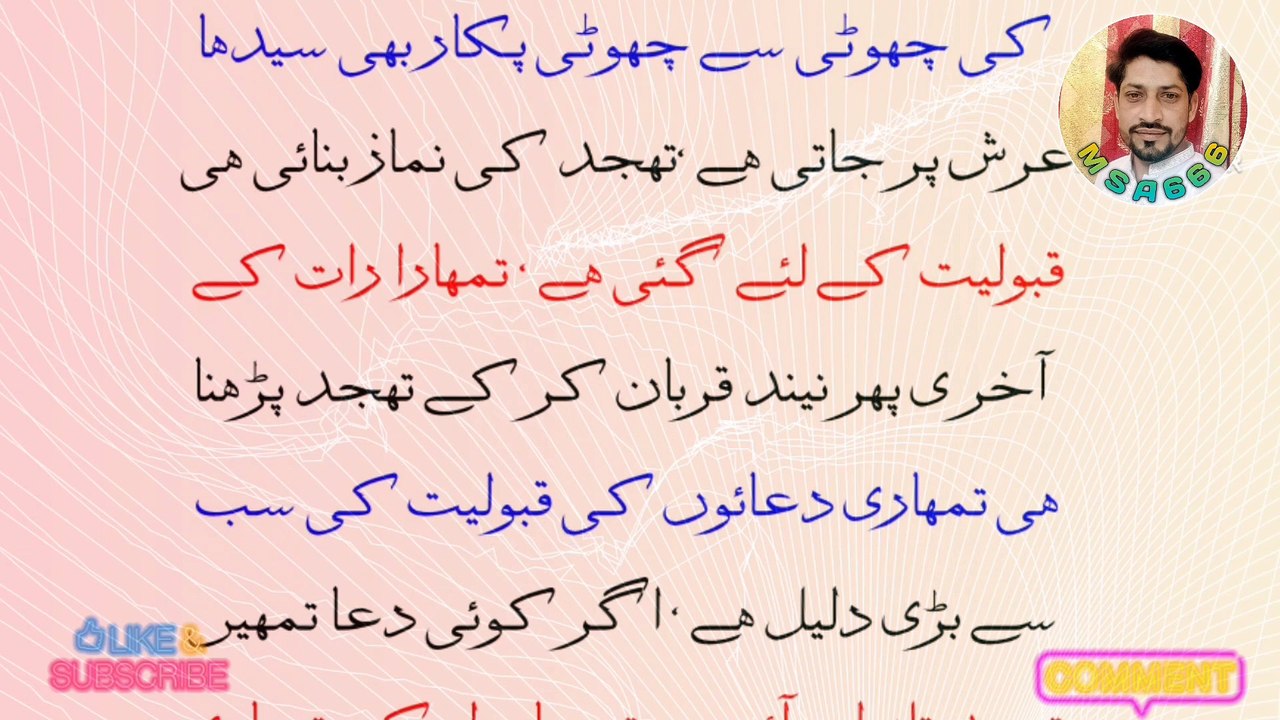 کی چھوٹی سے چھوٹی پکار بھی سیدھا
عرش پر جاتی ھے ،تھجد کی نماز بنائی ھی
قبولیت کے لئے گئی ھے ، تمھارا رات کے
آخری پھر نیند قربان کر کے تھجد پڑھنا
ھی تمھاری دعائوں کی قبولیت کی سب
سے بڑی دلیل ھے ،اگر کوئی دعا تمھیں
MSA666
LIKE &
SUBSCRIBE
COMMENT